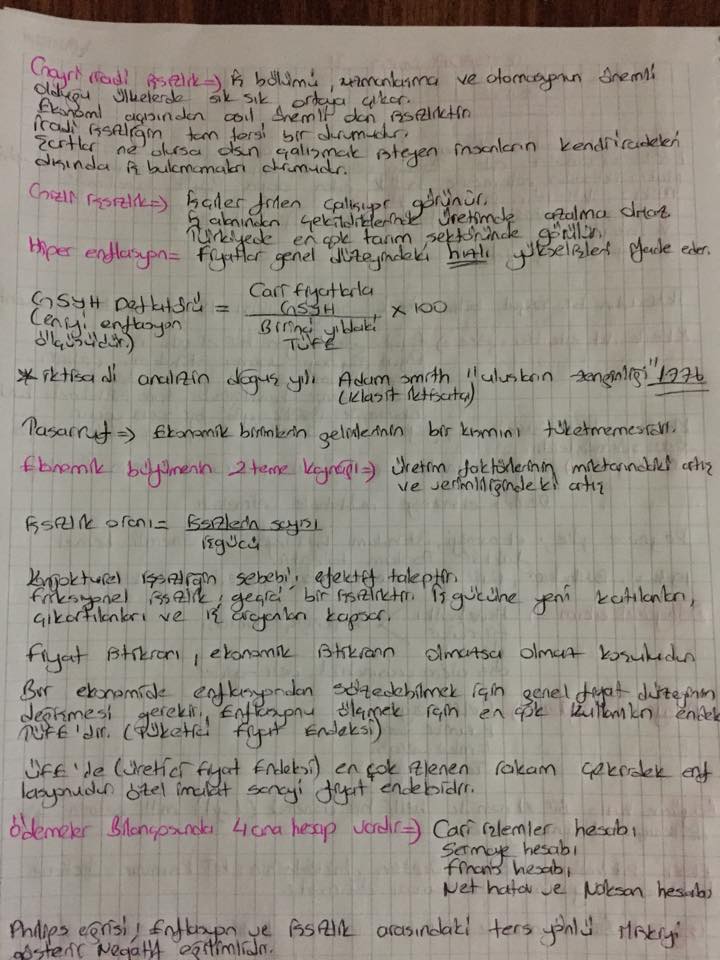 Gayri iradi işsizlik => İş bölümü, uzmanlaşma ve otomasyonun önemli
olduğu ülkelerde sık sık ortaya çıkar.
Ekonomi açısından asıl önemli olan işsizliktir.
İradi işsizliğin tam tersi bir durumudur.
Şartlar ne olursa olsun çalışmak isteyen insanların kendi iradeleri
dışında iş bulamamaları durumudur.
Gizli işsizlik => İşçiler fiilen çalışıyor görünür.
İş alanından çekildiklerinde üretimde azalma olmaz.
Türkiyede en çok tarım sektöründe görülür.
Hiper enflasyon = Fiyatlar genel düzeyindeki hızlı yükselişleri ifade eder.
GSYH Deflatörü = Cari fiyatlarla GSYH / Birinci yıldaki TÜFE x 100
(en iyi enflasyon
ölçüsüdür.)
* iktisadi analizin doğuş yılı Adam smith "ulusların zenginliği" 1776
(klasik iktisatçı)
Tasarruf => Ekonomik birimlerin gelirlerinin bir kısmını tüketmemesidir.
Ekonomik büyümenin 2 temel kaynağı => Üretim faktörlerinin miktarındaki artış
ve verimliliğindeki artış
İşsizlik oranı = İşsizlerin sayısı / işgücü
Konjoktürel işsizliğin sebebi, efektif taleptir.
friksiyonel işsizlik, geçici bir işsizliktir. İş gücüne yeni katılanları,
çıkartılanları ve iş arayanları kapsar.
Fiyat istikrarı, ekonomik istikrarın olmazsa olmaz koşuludur
Bir ekonomide enflasyondan sözedebilmek için genel fiyat düzeyinin
değişmesi gerekir. Enflasyonu ölçmek için en çok kullanılan endek
TÜFE'dir. (Tüketici fiyat Endeksi)
ÜFE'de (üretici fiyat Endeksi) en çok izlenen rakam çekirdek enf
lasyonudur özel imalat sanayi fiyat endeksidir.
Ödemeler Bilançosunda 4 ana hesap vardır => Cari işlemler hesabı
Sermaye hesabı
finans hesabı
Net hata ve Noksan hesabı
Philips eğrisi, Enflasyon ve işsizlik arasındaki ters yönlü ilişkiyi
gösterir Negatif eğimlidir.